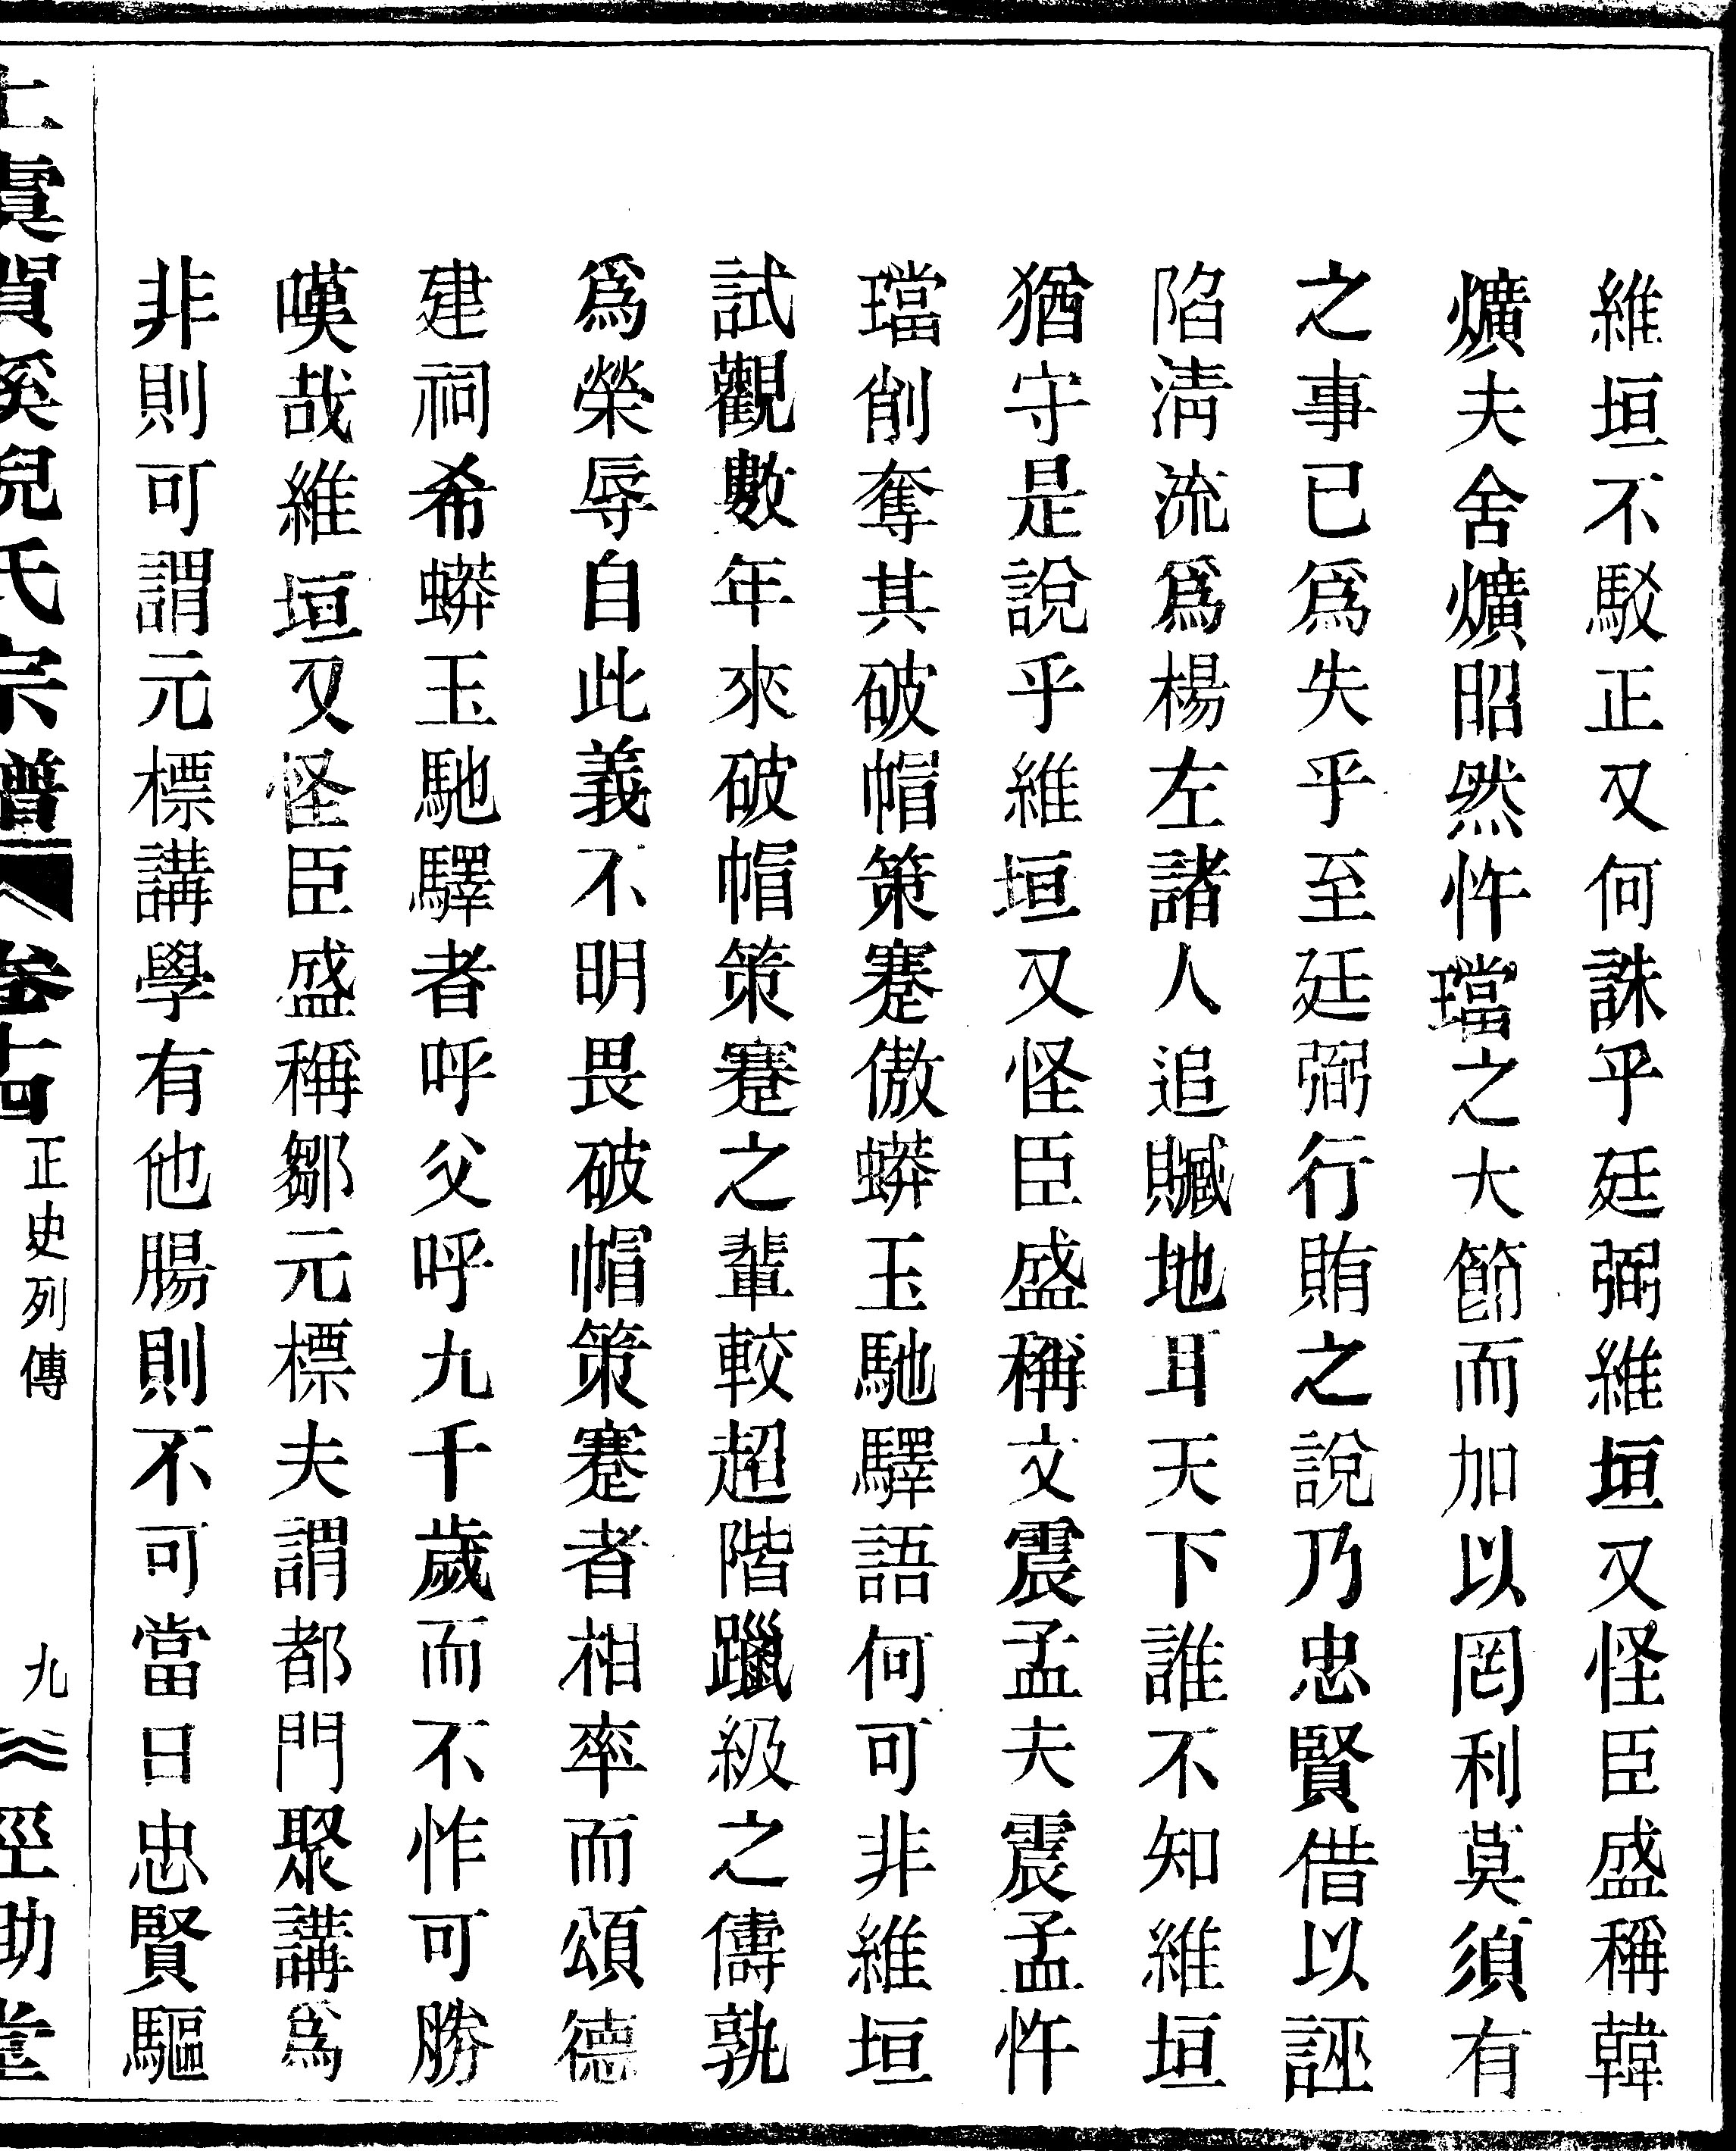 維垣不駁正又何誅乎廷弼維垣又怪臣盛稱韓
爌夫舍爌昭然忤璫之大節而加以罔利莫須有
之事已爲失乎至廷弼行賄之說乃忠賢借以誣
陷淸流爲楊左諸人追贓地耳天下誰不知維垣
猶守是說乎維垣又怪臣盛稱文震孟夫震孟忤
璫削奪其破帽策蹇傲蟒玉馳驛語何可非維垣
試觀數年來破帽策蹇之輩較超階躐級之儔孰
爲榮辱自此義不明畏破帽策蹇者相率而頌德
建祠希蟒玉馳驛者呼父呼九千歲而不怍可勝
嘆哉維垣又怪臣盛稱鄒元標夫謂都門聚講爲
非則可謂元標講學有他腸則不可當日忠賢驅
上虞賀溪倪氏宗譜 卷十四 正史列傳 九 經助堂